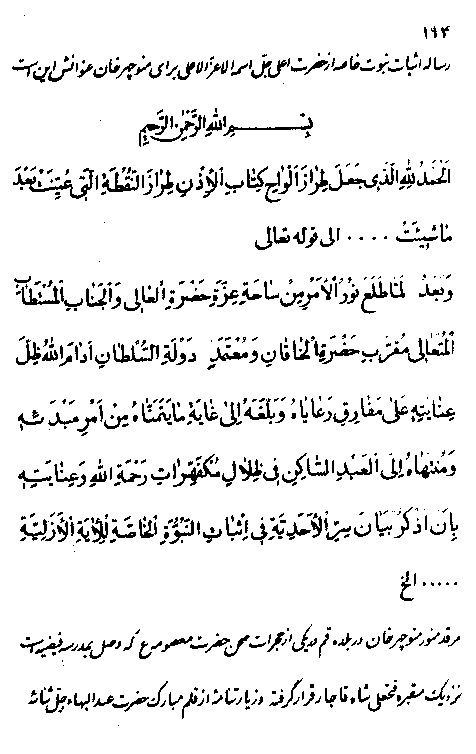 ۱۶۴
رساله اثبات نبوت خاصه از حضرت اعلی جلّ اسمه الاعز الاعلی برای منوچهر خان عنوانش این است
بِسْمِ اللهِ الرَّحْمٰنِ الرَّحِیْمِ
اَلْحَمْدُ لِلّٰهِ الَّذی جَعَلَ طِرازَ اَلْواحِ کِتابِ الْاِذْنِ طِرازَ النُّقْطَةِ الَّتی عُیِّنَتْ بَعْدَ
ماشُیِّئَتْ ۰۰۰۰ الی قوله تعالی
وَبَعْدُ لَمّا طَلَعَ نُورُ الْاَمْرِ مِنْ ساحَةِ عِزَّةِ حَضْرَةِ الْعالی وَالْجَنابِ الْمُسْتَطابِ
الْمُتَعالی مُقَرَّبِ حَضْرَةِ الْخاقانِ وَ مُعْتَمَدِ دَوْلَةِ السُّلْطانِ اَدامَ اللهُ ظِلَّ
عِنایَتِهِ عَلی مَفارِقِ رَعایاهُ وَ بَلَّغَهُ اِلی غایَةِ ما یَتَمَنّاهُ مِنْ اَمْرِ مَبْدَئِهِ
وَ مُنْتَهاهُ اِلَی الْعَبْدِ السّاکِنِ فی ظِلالِ مُکْفَهِرّاتِ رَحْمَةِ اللهِ وَ عِنایَتِهِ
بِاَنْ اَذْکُرَ بَیانَ سِرِّ الْاَحَدِیَّةِ فی اِثْباتِ النُّبُوَّةِ الْخاصَّةِ لِلْایَةِ الْاَزَلِیَّةِ
۰۰۰۰۰ الخ
مرقد منور منوچهر خان در بلده قم در یکی از حجرات صحن حضرت معصومه ع که وصل بمدرسه فیضیه است
نزدیک مقبره فتحعلی شاه قاجار قرار گرفته و زیارتنامه از قلم مبارک حضرت عبد البهاء جلّ ثنائه